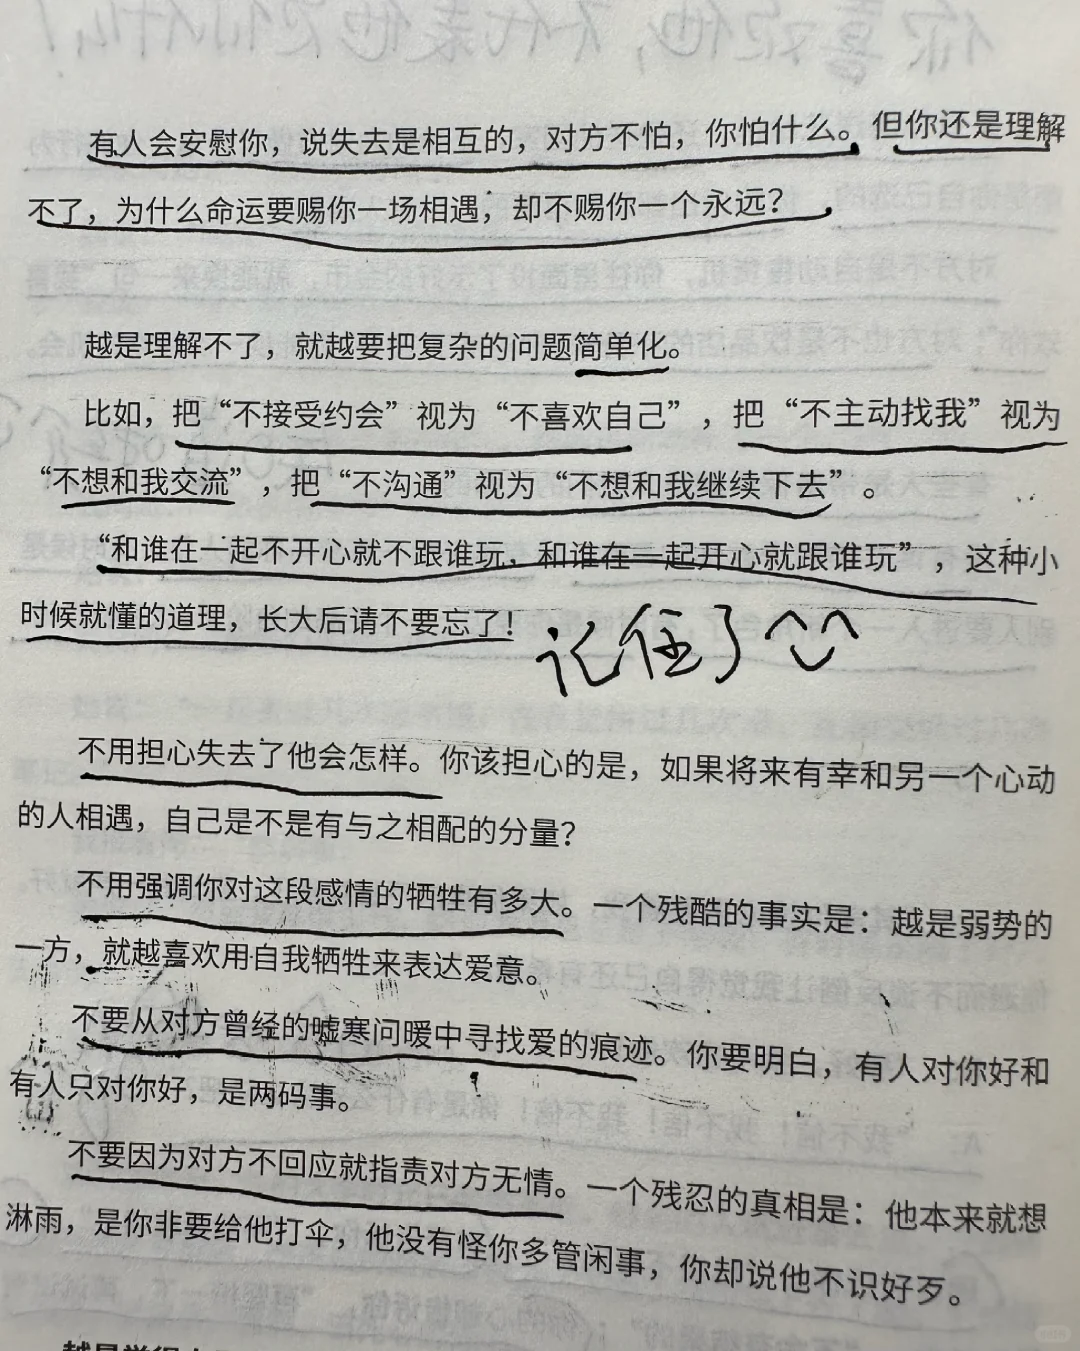 有人会安慰你，说失去是相互的，对方不怕，你怕什么。但你还是理解
不了，为什么命运要赐你一场相遇，却不赐你一个永远？
越是理解不了，就越要把复杂的问题简单化。
比如，把“不接受约会”视为“不喜欢自己”，把“不主动找我”视为
“不想和我交流”，把“不沟通”视为“不想和我继续下去”。
“和谁在一起不开心就不跟谁玩，和谁在一起开心就跟谁玩”，这种小
时候就懂的道理，长大后请不要忘了！
记住了
不用担心失去了他会怎样。你该担心的是，如果将来有幸和另一个心动
的人相遇，自己是不是有与之相配的分量？
不用强调你对这段感情的牺牲有多大。一个残酷的事实是：越是弱势的
一方，就越喜欢用自我牺牲来表达爱意。
不要从对方曾经的嘘寒问暖中寻找爱的痕迹。你要明白，有人对你好和
有人只对你好，是两码事。
不要因为对方不回应就指责对方无情。一个残忍的真相是：他本来就想
淋雨，是你非要给他打伞，他没有怪你多管闲事，你却说他不识好歹。